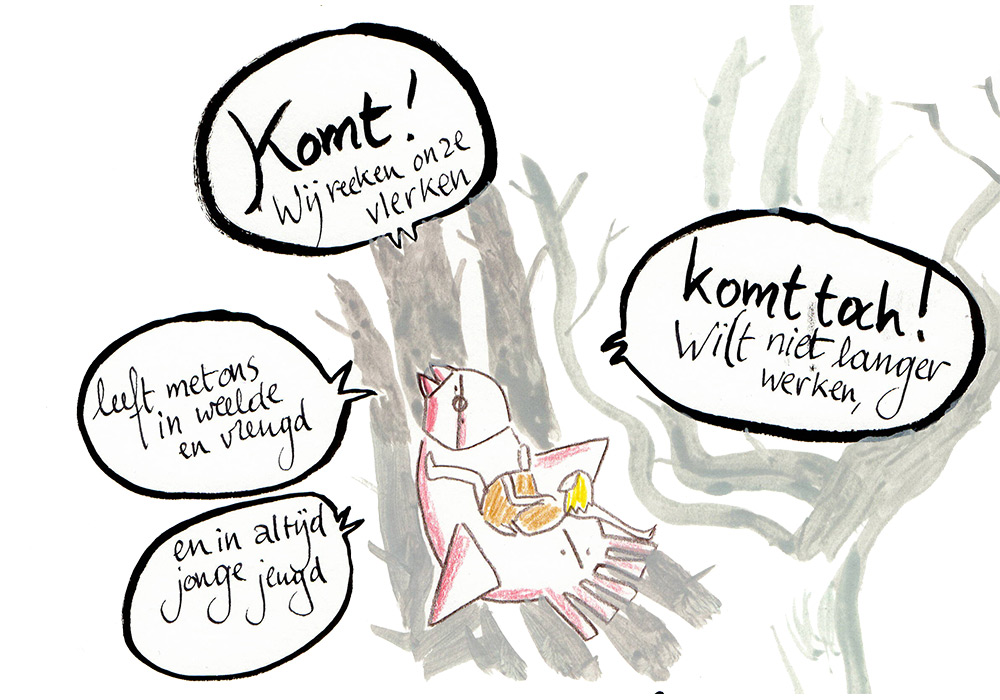 Komt!
Wij reeken onze
vlerken
komt toch!
Wilt niet langer
werken,
leeft met ons
in weelde
en vreugd
en in altijd
jonge jeugd